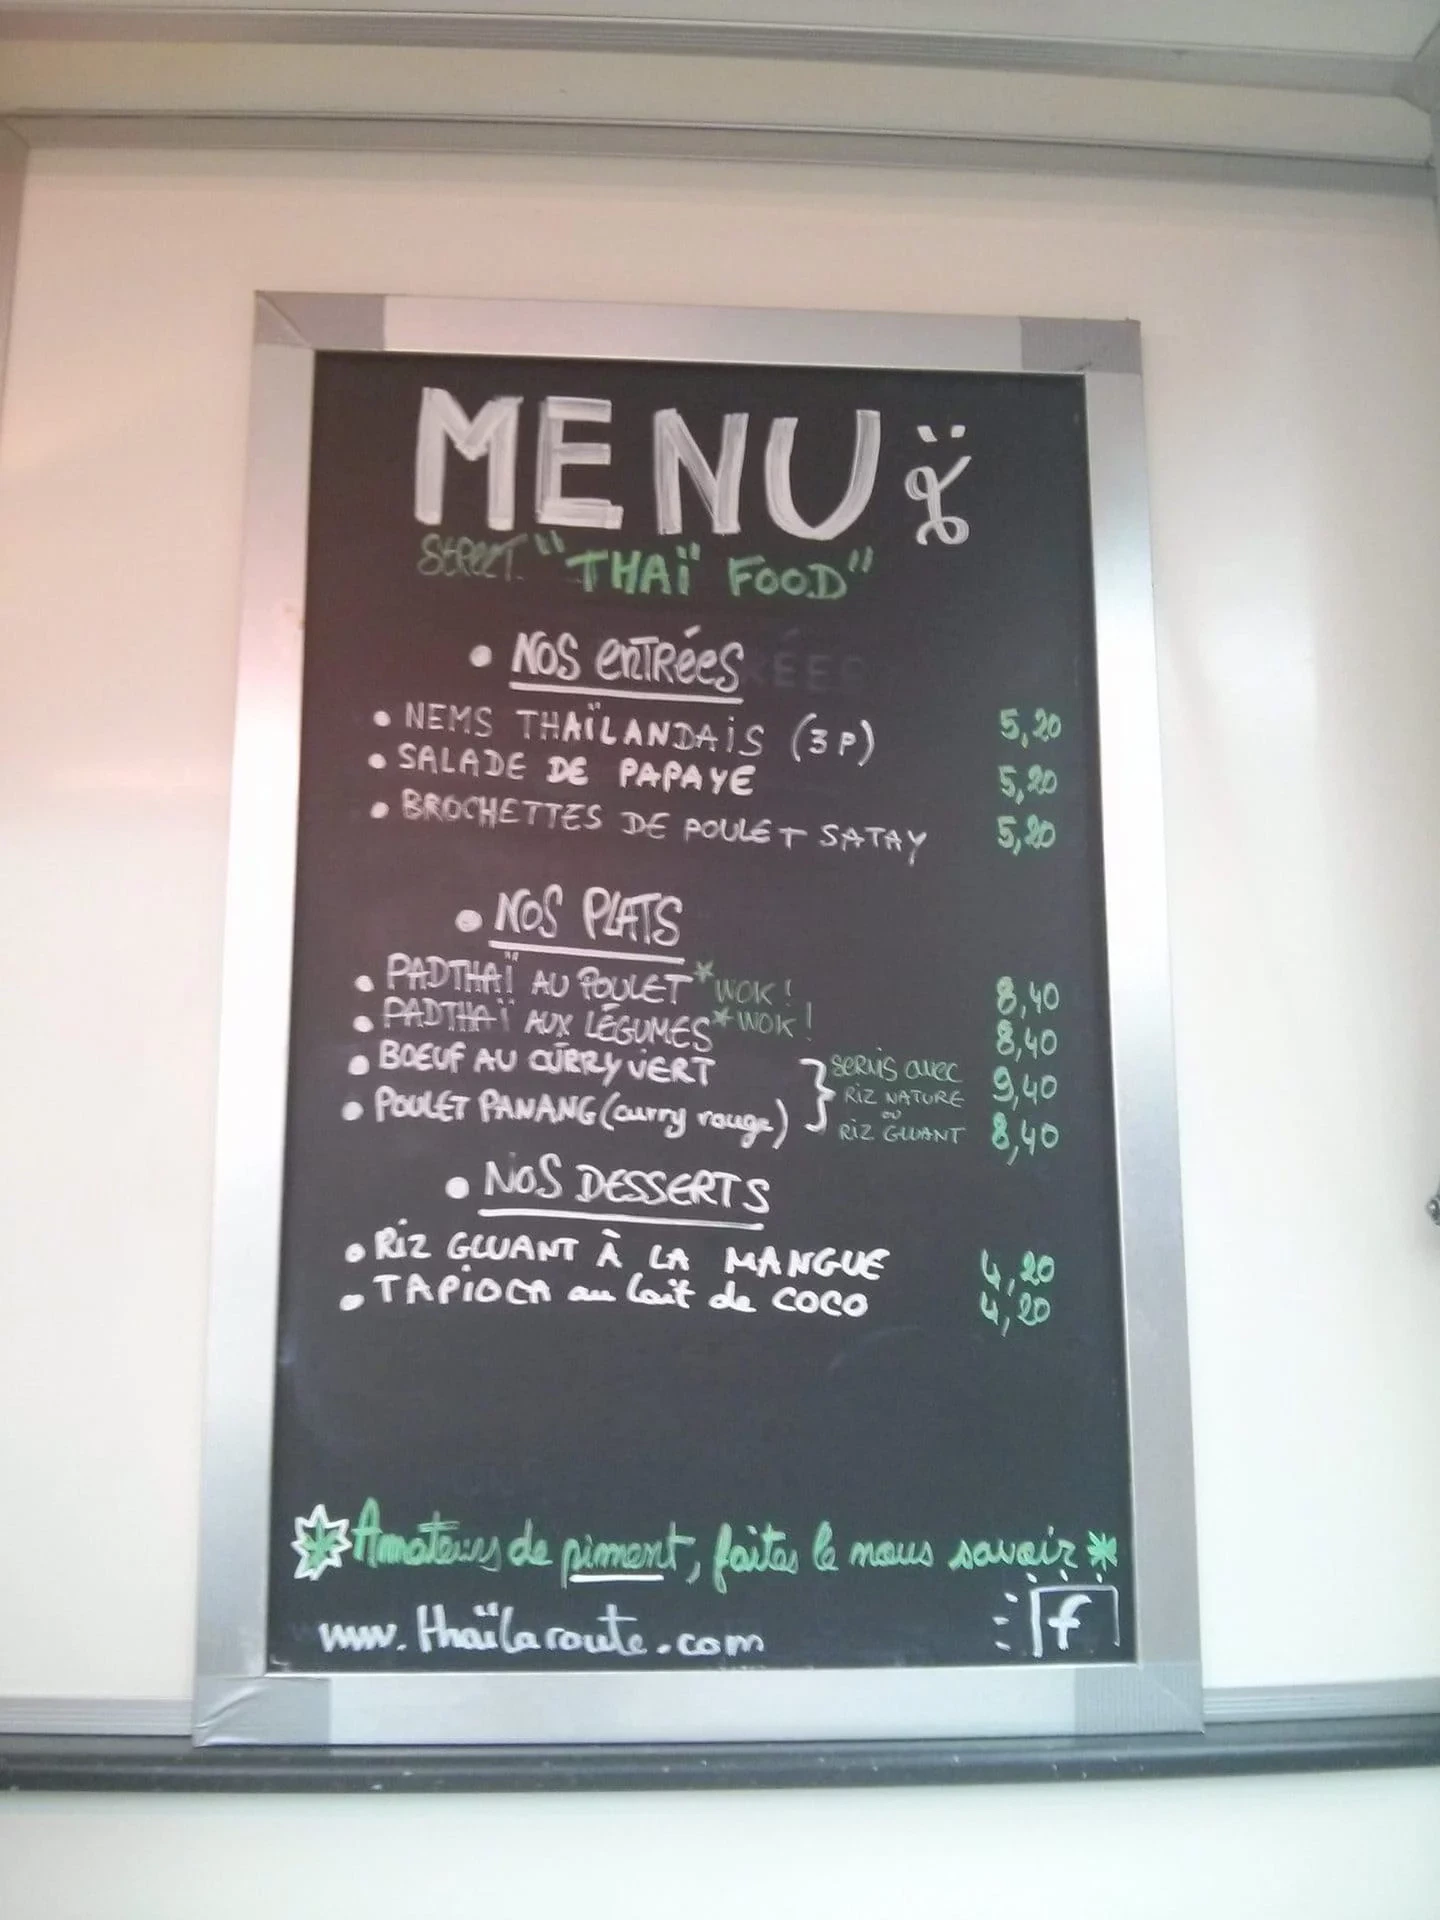 MENU
STREET "THAÏ FOOD"
• NOS ENTRÉES
• NEMS THAÏLANDAIS (3 P) 5,20
• SALADE DE PAPAYE 5,20
• BROCHETTES DE POULET SATAY 5,20
• NOS PLATS
• PADTHAÏ AU POULET *WOK! 8,40
• PADTHAÏ AUX LÉGUMES *WOK! 8,40
• BOEUF AU CURRY VERT 9,40
• POULET PANANG (curry rouge) 8,40
SERVIS avec
RIZ NATURE
OU
RIZ GLUANT
• NOS DESSERTS
• RIZ GLUANT À LA MANGUE 4,20
• TAPIOCA au lait de COCO 4,20
* Amateurs de piment, faites le nous savoir *
www.thaïlaroute.com f